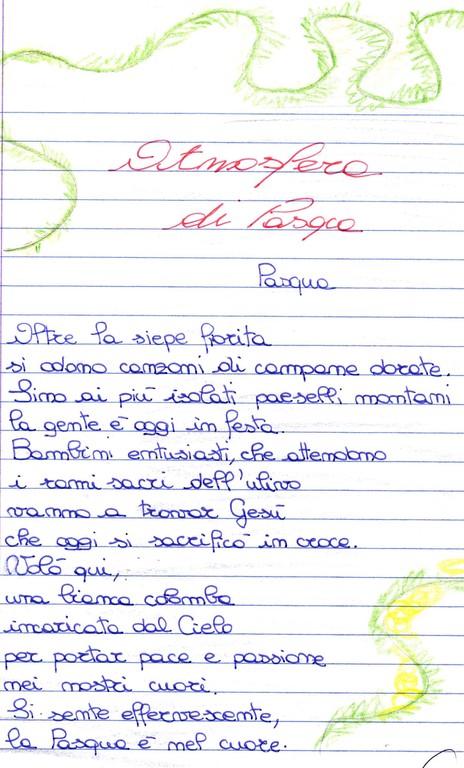 Atmosfera
di Pasqua
Pasqua
Oltre la siepe fiorita
si odono canzoni di campane dorate.
Sino ai più isolati paeselli montani
la gente è oggi in festa.
Bambini entusiasti, che attendono
i rami sacri dell'ulivo
vanno a trovar Gesù
che oggi si sacrificò in croce.
Volò qui,
una bianca colomba
incaricata dal Cielo
per portar pace e passione
nei nostri cuori.
Si sente effervescente,
la Pasqua è nel cuore.